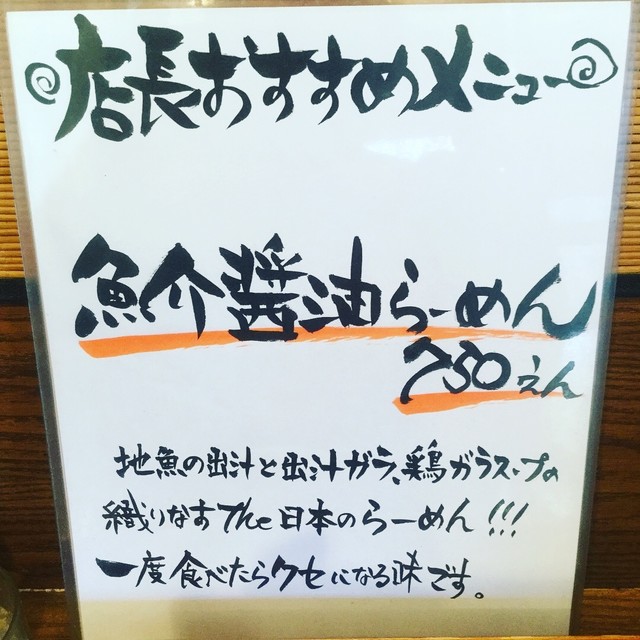 店長おすすめメニュー
魚介醤油らーめん
750えん
地魚の出汁と出汁ガラ、鶏ガラスープの
織りなすThe日本のらーめん!!!
一度食べたらクセになる味です。